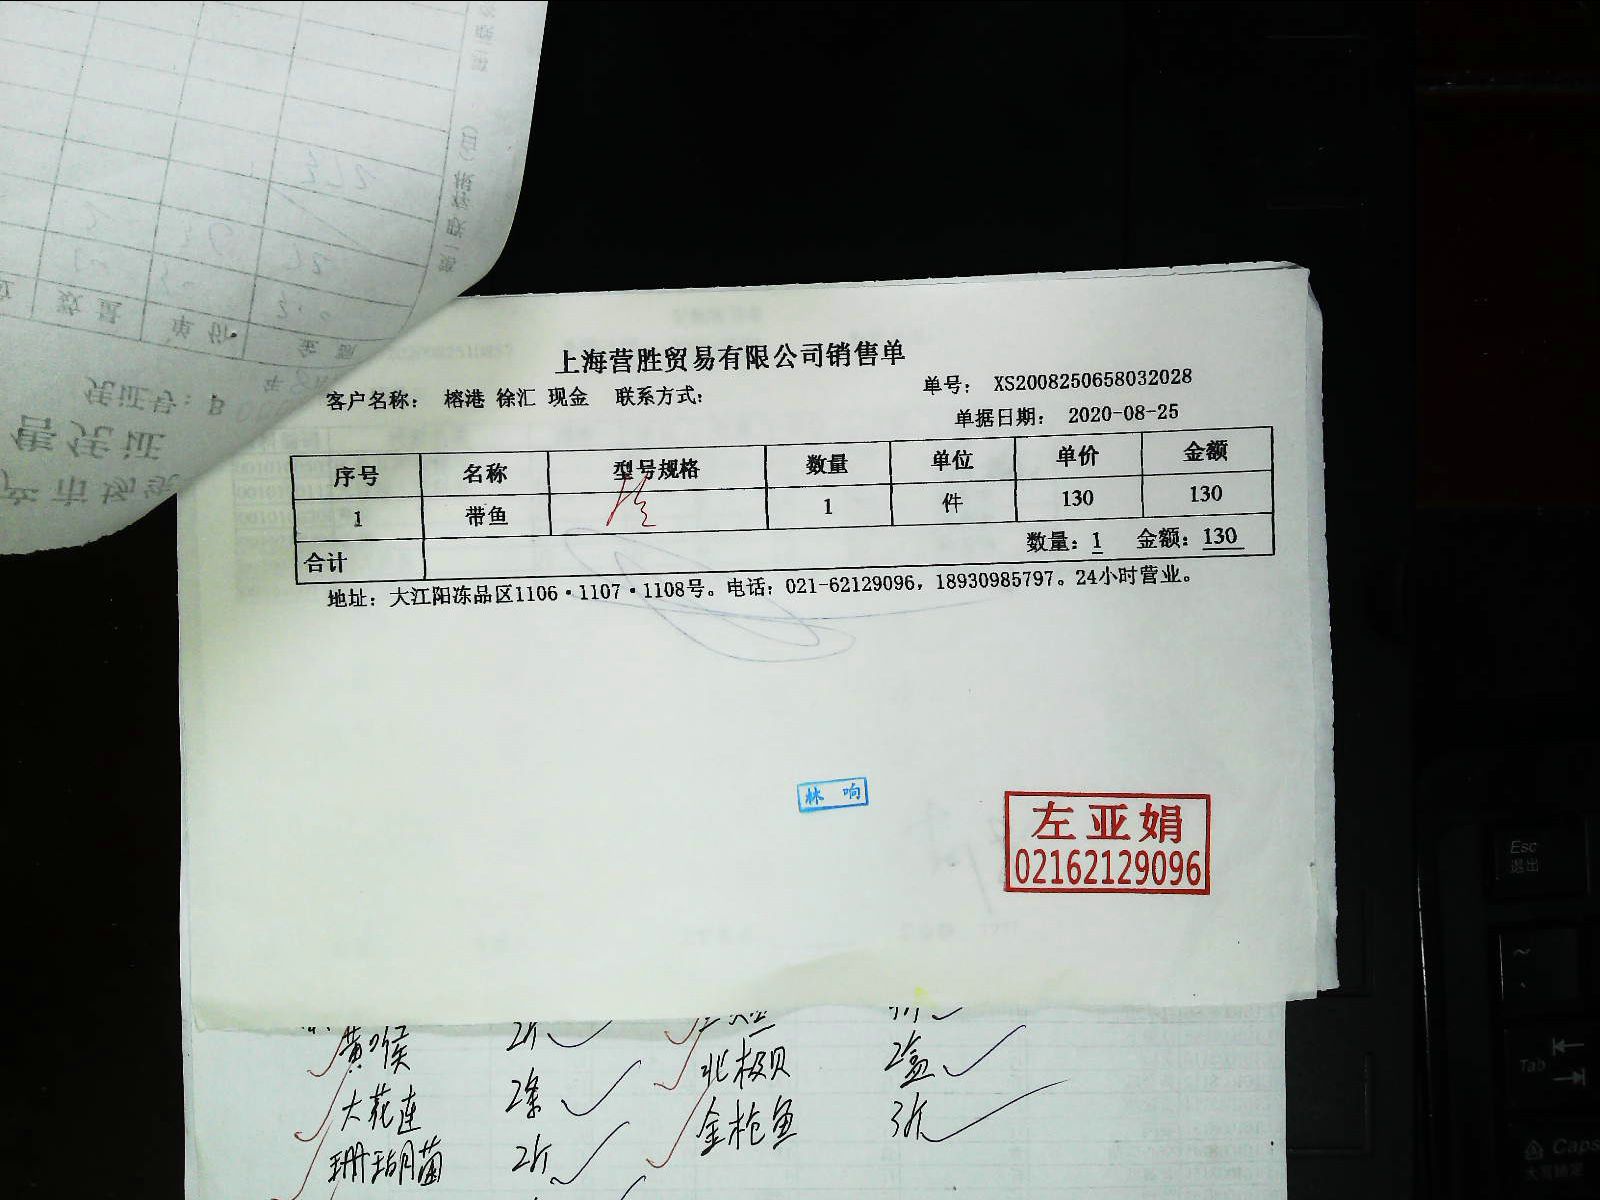 上海营胜贸易有限公司销售单
客户名称： 榕港 徐汇 现金 联系方式：
单号： XS2008250658032028
单据日期： 2020-08-25
序号 名称 型号规格 数量 单位 单价 金额
1 带鱼 1 件 130 130
合计 数量：1 金额：130
地址：大江阳冻品区1106·1107·1108号。电话：021-62129096，18930985797。24小时营业。
林 响
左亚娟
02162129096
黄喉 2斤
北极贝 2盒
大花连 2条
金枪鱼 3斤
珊瑚菌 2斤
凭证号：
售凭证
数量
单价
金额
Esc
退出
Tab
Caps
大写锁定